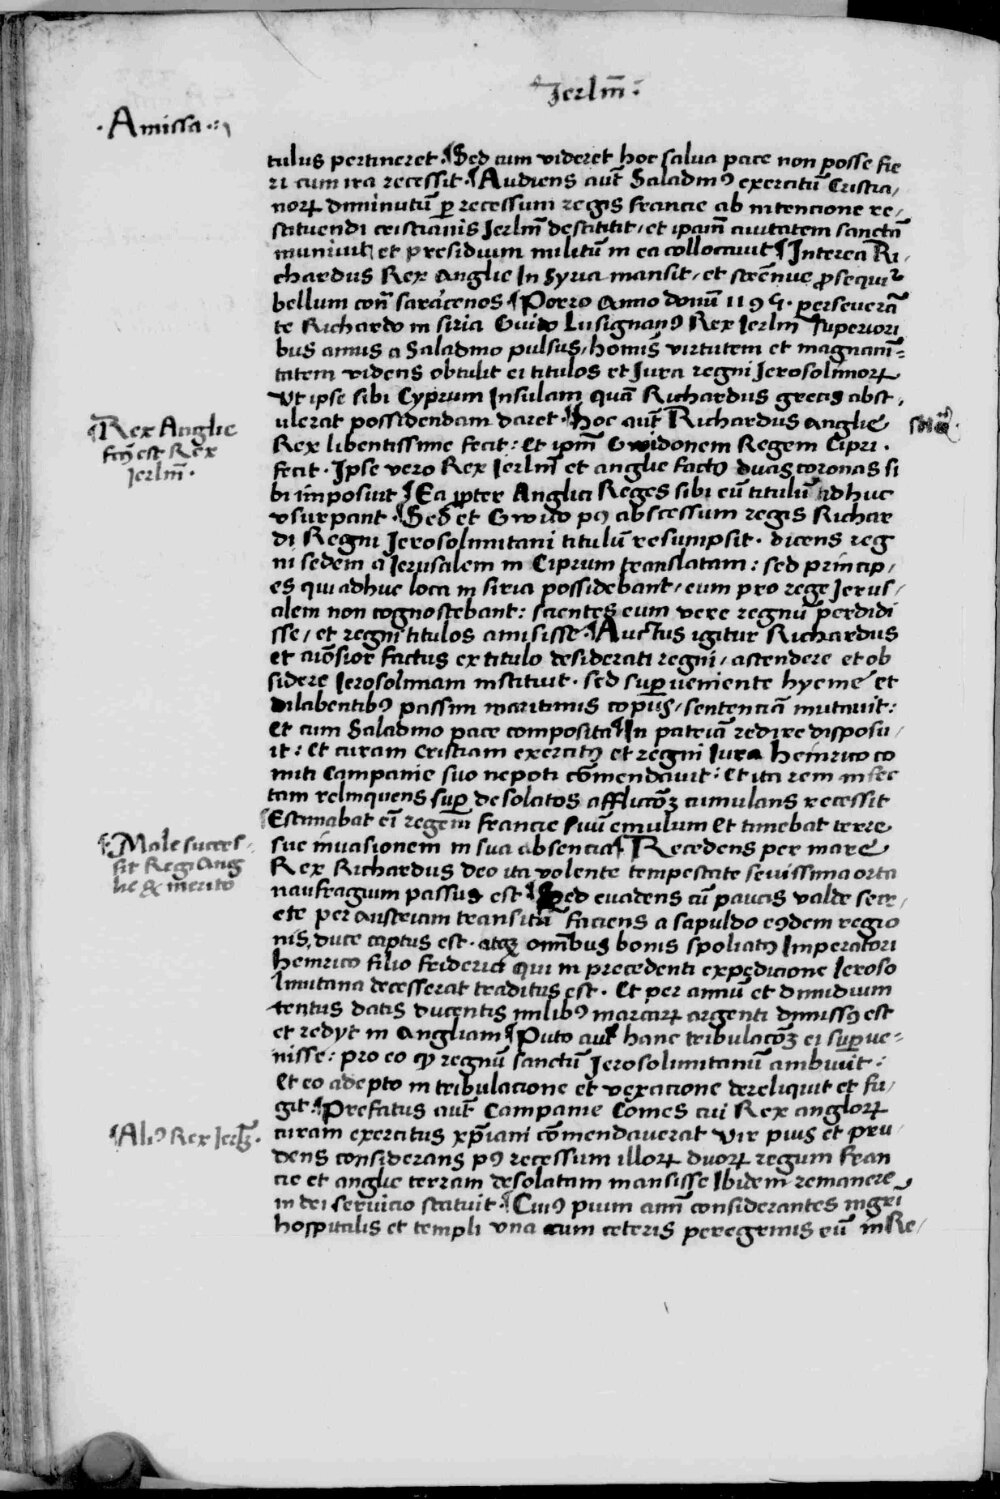 Jerlm̄ :
· Amissa ·:
tulus pertineret · ¶ Sed cum videret hoc salua pace non posse fie
ri cum ira recessit · ¶ Audiens aut̄ Saladinꝰ exercitū Cristia,
norꝝ diminutū ꝑ recessum regis francie ab intencione re,
stituendi cristianis Jerlm̄ destitit, et ip̄am ciuitatem sanctā
muniuit et presidium militū in ea collocauit ¶ Interea Ri,
chardus Rex Anglie In Syria mansit, et strēnue ꝓsequit᷑
bellum con̄ saracenos ¶ Porro Anno domī 1195 · perseuerā
te Richardo in siria Guido Lusignanꝰ Rex Jerlm̄ superiori
bus annis a Saladino pulsus, homīs virtutem et magnani=
tatem videns obtulit ei titulos et Jura regni Jerosolimorꝝ
Vt ipse sibi Cyprum Insulam quā Richardus grecis abst,
ulerat possidendam daret · ¶ Hoc aut̄ Richardus Anglie
Rex libentissime fecit : Et ip̄m Gwidonem Regem Cipri ·
¶ Rex Anglie
fct̄ꝰ est Rex
Jerlm̄ ·
fecit · Ipse vero Rex Jerlm̄ et anglie factꝰ duas coronas si
bi imposuit ¶ Ea ꝓpter Anglici Reges sibi eū titulū adhuc
vsurpant · ¶ Sed et Gwido pꝰ abscessum regis Richar
di Regni Jerosolimitani titulū resumpsit · dicens reg
ni sedem a Jerusalem in Ciprum translatam : sed princip,
es qui adhuc loca in siria possidebant, eum pro rege Jerus,
alem non cognoscebant : scientes eum vere regnū perdidi
sse, et regni titulos amisisse · ¶ Auctus igitur Richardus
et factus ex titulo desiderati regni, ascendere et ob
sidere Jerosolimam instituit · sed superueniente hyeme et
dilabentibꝰ passim maritimis copijs, sentenciā mutauit :
Et cum Saladino pace composita ¶ In patriā redire disposu,
it : Et curam Cristiani exercitꝰ et regni Iura Heinrico co
miti Campanie suo nepoti cōmendauit : Et ita rem infec
tam relinquens super desolatos afflictōꝫ cumulans recessit
¶ Estimabat em̄ regem francie suū emulum Et timebat terre
sue inuasionem in sua absencia ¶ Recedens per mare
¶ Male succes,
sit Regi Ang
lie et merito
Rex Richardus deo ita volente tempestate seuissima orta
naufragium passus est ¶ Sed euadens cū paucis valde secr,
ete per austriam transitū faciens a sapuldo eꝰdem regio
nis, duce captus est · atqꝫ omnibus bonis spoliatꝰ Imperatori
Heinrico filio friderici qui in precedenti expedicione Jeroso
limitana decesserat traditus est · Et per annū et dimidium
tentus datis ducentis milibꝰ marcarꝝ argenti dimissꝰ est
et redyt in Angliam ¶ Puto aut̄ hanc tribulacōꝫ ei superue=
nisse : pro eo ꝙ regnū sanctū Jerosolimitanū ambiuit :
Et eo adepto in tribulacione et vexacione dereliquit et fu,
git · ¶ Prefatus aut̄ Campanie Comes cui Rex anglorꝝ
¶ Aliꝰ Rex Jerlm̄ ·
curam exercitus xp̄iani cōmendauerat vir pius et pru,
dens considerans pꝰ recessum illorꝝ duorꝝ regum fran
cie et anglie terram desolatam mansisse Ibidem remanere
in dei seruicio statuit · ¶ Cuiꝰ pium anīm considerantes mgr̄i
hospitalis et templi vna cum ceteris peregrinis eū in Re,